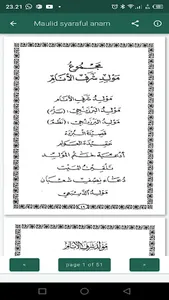 23.21
Maulid syaraful anam
مجموع
مولد شرف الأنام
مولد شرف الأنام
مولد البرزنجي (نثر)
مولد البرزنجي (نظم)
قصيدة البردة
عقيدة العوام
أدعية ختم المولد
دعاء نصف شعبان
page 1 of 51
مولد شرف الأنام